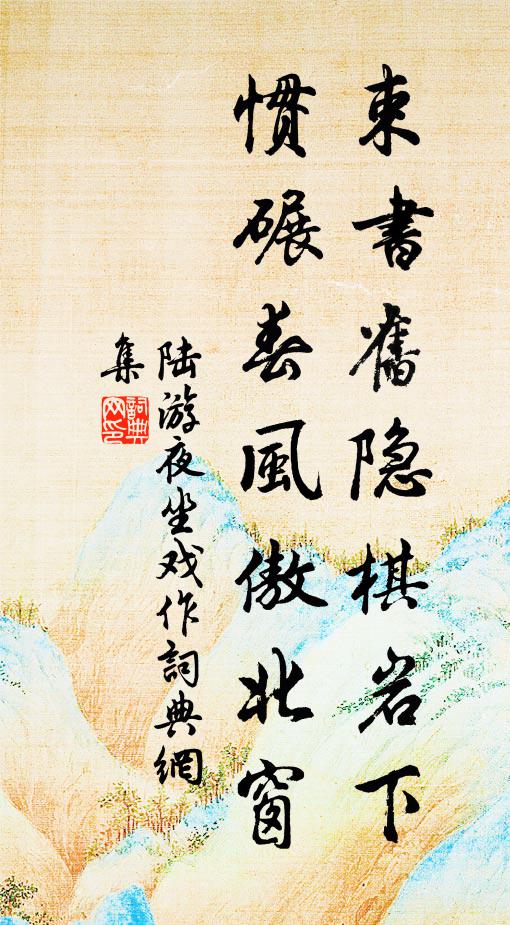 束書舊隐棋岩下
慣碾春風傲北窗
陆游夜坐戏作詞典網
集
詞典網印